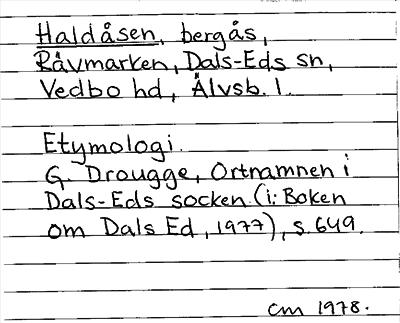 Haldåsen, bergås,
Råvmarken, Dals-Eds sn,
Vedbo hd, Älvsb. l.
Etymologi.
G. Drougge, Ortnamnen i
Dals-Eds socken (i: Boken
om Dals Ed, 1977), s. 649.
CM 1978.